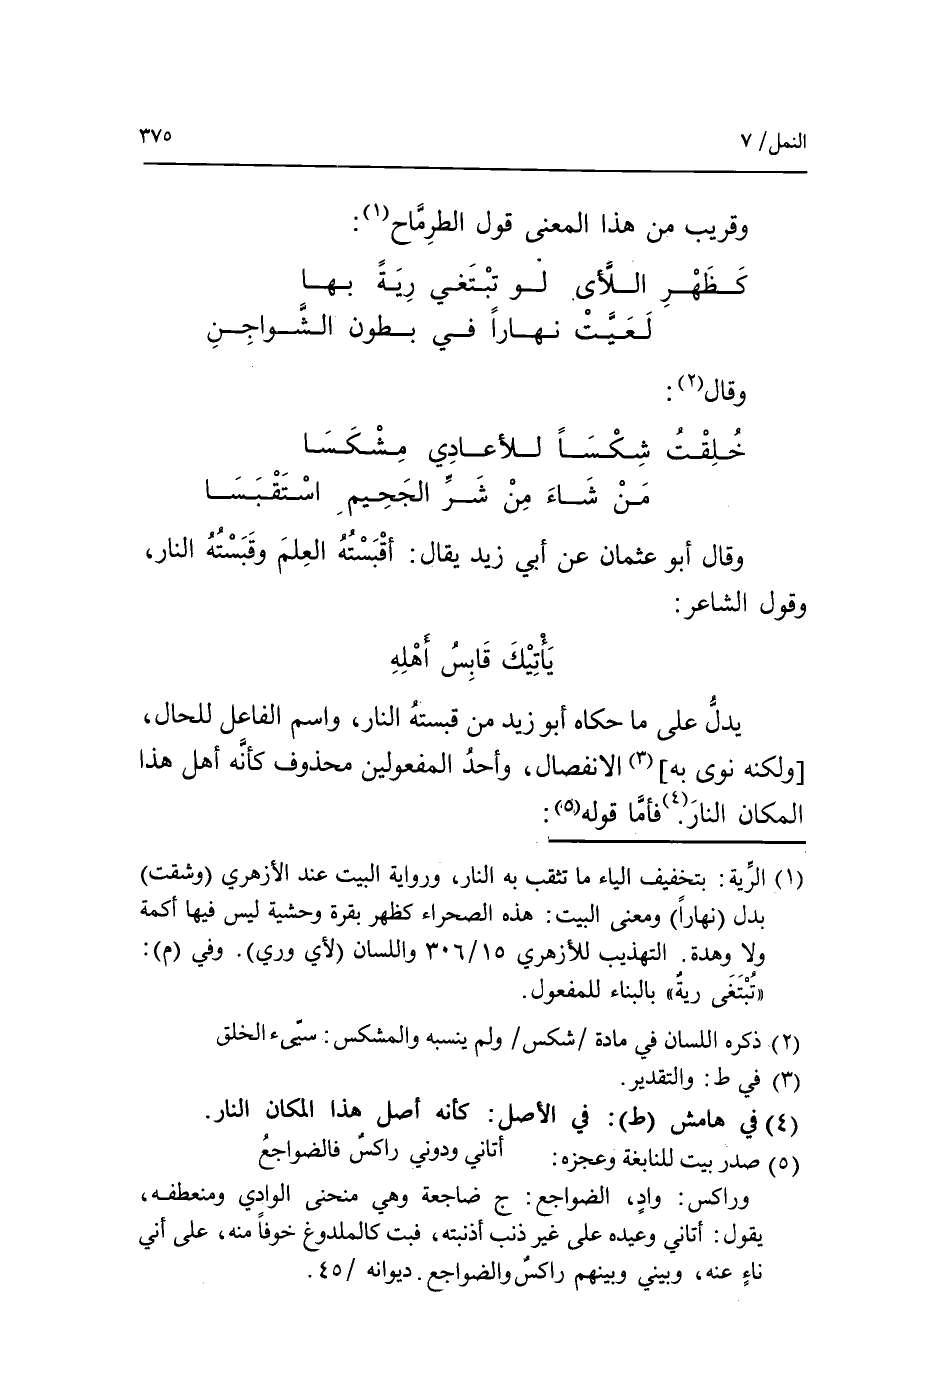 النمل/ ٧
٣٧٥
وقريب من هذا المعنى قول الطرِمَّاح(١):
كَـظَهْـرِ الـلَّأى لـو تبْتَغي رِيَـةً بـهـا
لَـعَـيَّـتْ نـهـاراً فـي بـطون الـشَّـواجِـنِ
وقال(٢):
خُـلِقْـتُ شِـكْـسَـاً لـلأعـادِي مِـشْـكَـسَـا
مَـنْ شَـاءَ مِنْ شَـرِّ الجَحِيم اسْـتَقْـبَـسَـا
وقال أبو عثمان عن أبي زيد يقال: أقْبَسْتُهُ العِلمَ وقَبَسْتُهُ النار،
وقول الشاعر:
يَأْتِيْكَ قَابِسُ أَهْلِهِ
يدلُّ على ما حكاه أبو زيد من قبستهُ النار، واسم الفاعل للحال،
[ولكنه نوى به](٣) الانفصال، وأحدُ المفعولين محذوف كأنَّه أهل هذا
المكان النارَ.(٤) فأمَّا قوله(٥):
(١) الرِّية: بتخفيف الياء ما تثقب به النار، ورواية البيت عند الأزهري (وشقت)
بدل (نهاراً) ومعنى البيت: هذه الصحراء كظهر بقرة وحشية ليس فيها أكمة
ولا وهدة. التهذيب للأزهري ٣٠٦/١٥ واللسان (لأي وري). وفي (م):
«تُبْتَغَى ريةٌ» بالبناء للمفعول.
(٢) ذكره اللسان في مادة /شكس/ ولم ينسبه والمشكس: سيّىء الخلق
(٣) في ط: والتقدير.
(٤) في هامش (ط): في الأصل: كأنه أصل هذا المكان النار.
(٥) صدر بيت للنابغة وعجزه: أتاني ودوني راكسٌ فالضواجعُ
وراكس: وادٍ، الضواجع: ج ضاجعة وهي منحنى الوادي ومنعطفه،
يقول: أتاني وعيده على غير ذنب أذنبته، فبت كالملدوغ خوفاً منه، على أني
ناءٍ عنه، وبيني وبينهم راكسٌ والضواجع. ديوانه /٤٥.